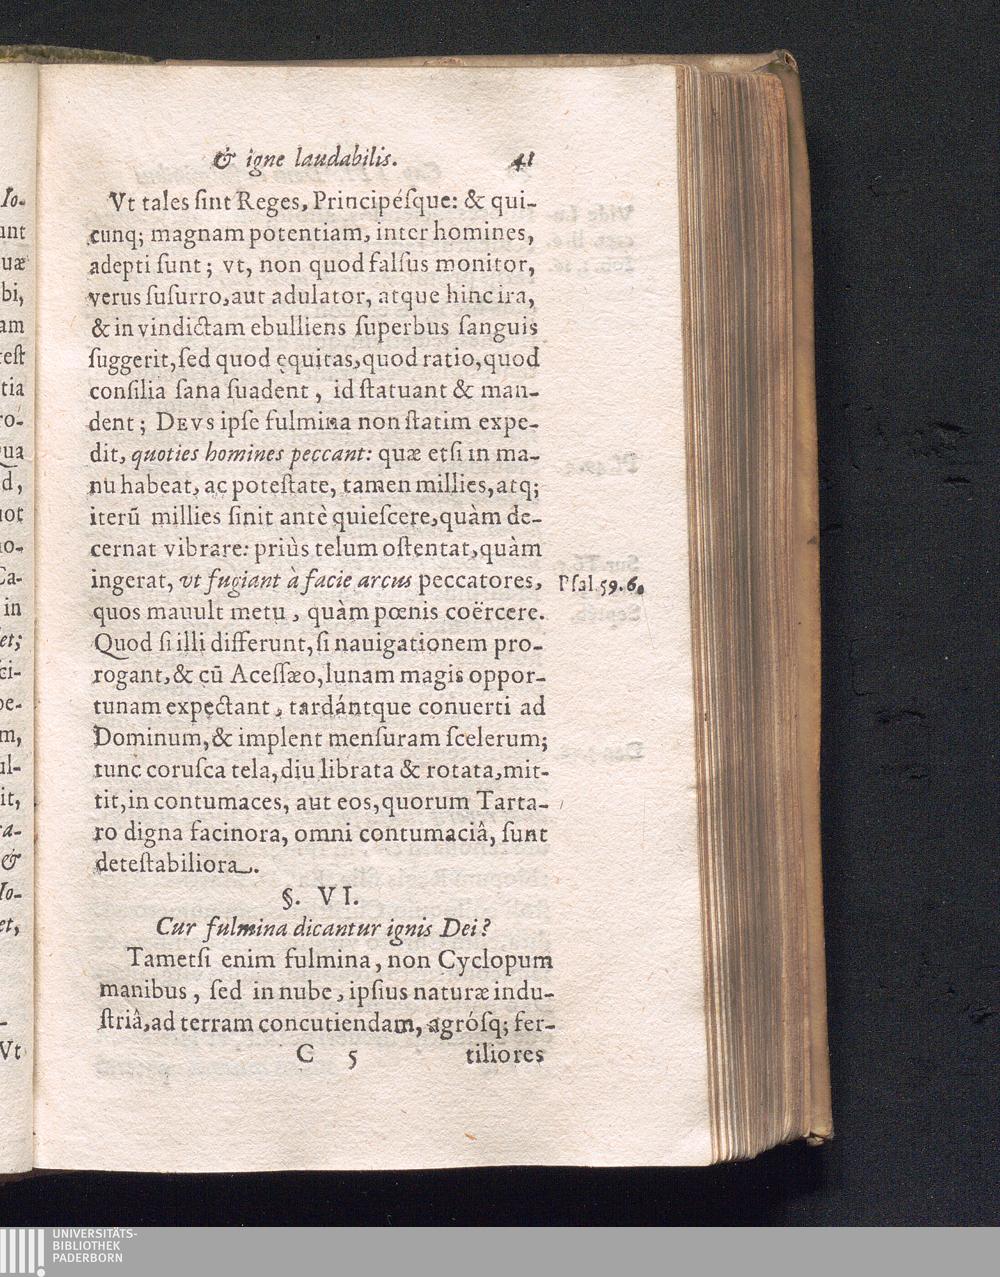 & igne laudabilis. 41
Vt tales ſint Reges, Principéſque: & qui-
cunq; magnam potentiam, inter homines,
adepti ſunt; vt, non quod falſus monitor,
verus ſuſurro, aut adulator, atque hinc ira,
& in vindictam ebulliens ſuperbus ſanguis
ſuggerit, ſed quod ęquitas, quod ratio, quod
conſilia ſana ſuadent, id ſtatuant & man-
dent; DEVS ipſe fulmina non ſtatim expe-
dit, quoties homines peccant: quæ etſi in ma-
nu habeat, ac poteſtate, tamen millies, atq;
iterũ millies ſinit antè quieſcere, quàm de-
cernat vibrare: priùs telum oſtentat, quàm
ingerat, vt fugiant à facie arcus peccatores,
Pſal. 59. 6.
quos mauult metu, quàm pœnis coërcere.
Quod ſi illi differunt, ſi nauigationem pro-
rogant, & cũ Aceſſæo, lunam magis oppor-
tunam expectant, tardántque conuerti ad
Dominum, & implent menſuram ſcelerum;
tunc coruſca tela, diu librata & rotata, mit-
tit, in contumaces, aut eos, quorum Tarta-
ro digna facinora, omni contumaciâ, ſunt
deteſtabiliora.
§. VI.
Cur fulmina dicantur ignis Dei?
Tametſi enim fulmina, non Cyclopum
manibus, ſed in nube, ipſius naturæ indu-
ſtriâ, ad terram concutiendam, agróſq; fer-
C 5 tiliores
UNIVERSITÄTS-
BIBLIOTHEK
PADERBORN